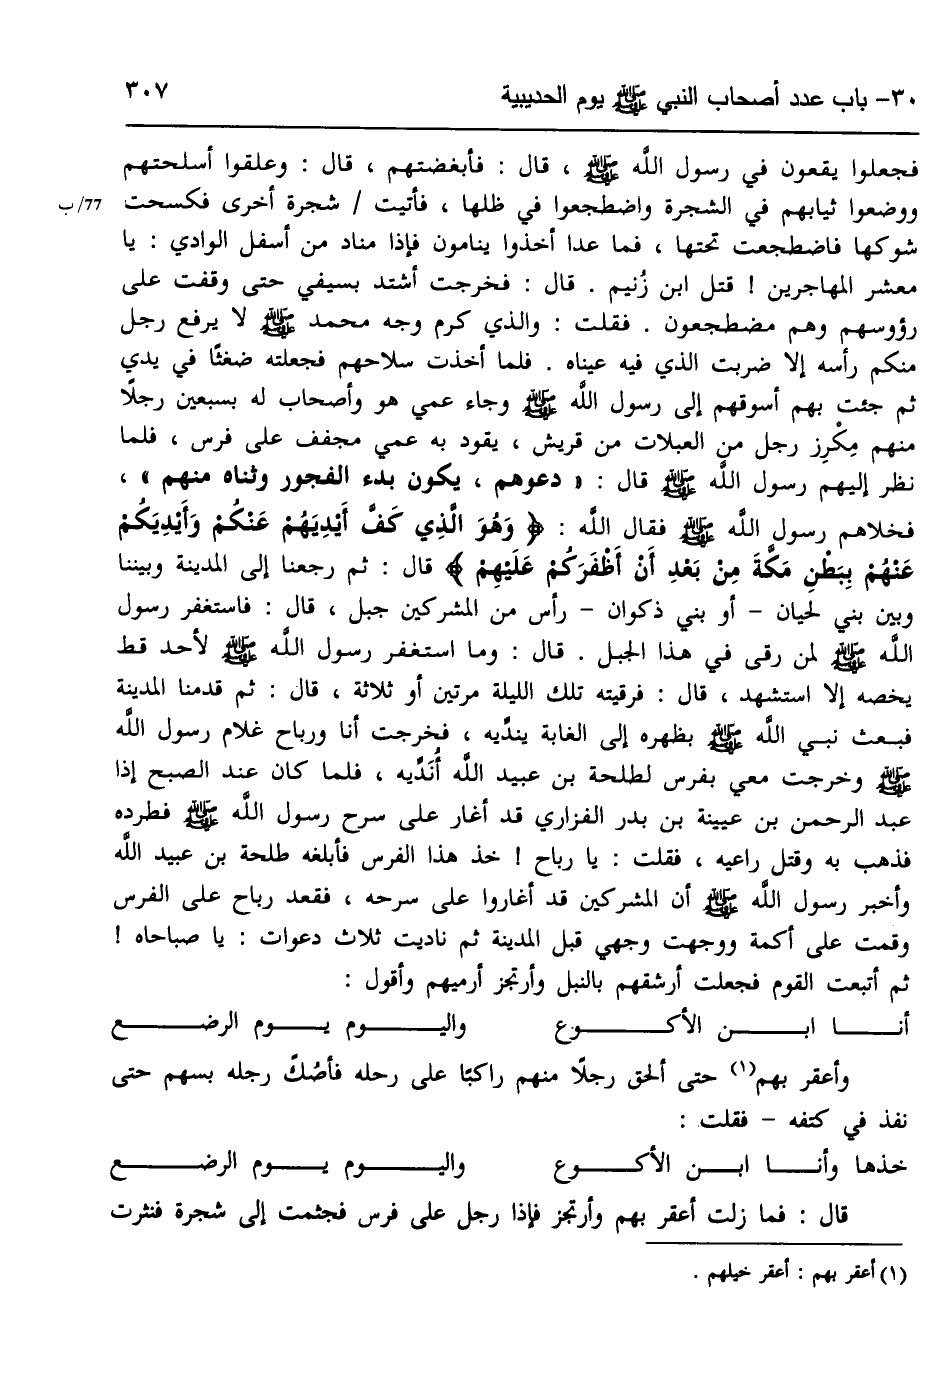 ٣٠- باب عدد أصحاب النبي ﷺ يوم الحديبية ٣٠٧
فجعلوا يقعون في رسول اللَّه ﷺ ، قال : فأبغضتهم ، قال : وعلقوا أسلحتهم
ووضعوا ثيابهم في الشجرة واضطجعوا في ظلها ، فأتيت / شجرة أخرى فكسحت 77/ب
شوكها فاضطجعت تحتها ، فما عدا أخذوا ينامون فإذا مناد من أسفل الوادي : يا
معشر المهاجرين ! قتل ابن زُنيم . قال : فخرجت أشتد بسيفي حتى وقفت على
رؤوسهم وهم مضطجعون . فقلت : والذي كرم وجه محمد ﷺ لا يرفع رجل
منكم رأسه إلا ضربت الذي فيه عيناه . فلما أخذت سلاحهم فجعلته ضغثًا في يدي
ثم جئت بهم أسوقهم إلى رسول اللَّه ﷺ وجاء عمي هو وأصحاب له بسبعين رجلًا
منهم مِكْرِز رجل من العبلات من قريش ، يقود به عمي مجفف على فرس ، فلما
نظر إليهم رسول اللَّه ﷺ قال : « دعوهم ، يكون بدء الفجور وثناه منهم » ،
فخلاهم رسول اللَّه ﷺ فقال اللَّه : ﴿ وَهُوَ الَّذِي كَفَّ أَيْدِيَهُمْ عَنكُمْ وَأَيْدِيَكُمْ
عَنْهُمْ بِبَطْنِ مَكَّةَ مِنْ بَعْدِ أَنْ أَظْفَرَكُمْ عَلَيْهِمْ ﴾ قال : ثم رجعنا إلى المدينة وبيننا
وبين بني لحيان – أو بني ذكوان – رأس من المشركين جبل ، قال : فاستغفر رسول
اللَّه ﷺ لمن رقى في هذا الجبل . قال : وما استغفر رسول اللَّه ﷺ لأحد قط
يخصه إلا استشهد ، قال : فرقيته تلك الليلة مرتين أو ثلاثة ، قال : ثم قدمنا المدينة
فبعث نبي اللَّه ﷺ بظهره إلى الغابة يندَّيه ، فخرجت أنا ورباح غلام رسول اللَّه
ﷺ وخرجت معي بفرس لطلحة بن عبيد اللَّه أُنَدَّيه ، فلما كان عند الصبح إذا
عبد الرحمن بن عيينة بن بدر الفزاري قد أغار على سرح رسول اللَّه ﷺ فطرده
فذهب به وقتل راعيه ، فقلت : يا رباح ! خذ هذا الفرس فأبلغه طلحة بن عبيد اللَّه
وأخبر رسول اللَّه ﷺ أن المشركين قد أغاروا على سرحه ، فقعد رباح على الفرس
وقمت على أكمة ووجهت وجهي قبل المدينة ثم ناديت ثلاث دعوات : يا صباحاه !
ثم أتبعت القوم فجعلت أرشقهم بالنبل وأرتجز أرميهم وأقول :
أنا ابن الأكوع واليوم يوم الرضع
وأعقر بهم(١) حتى ألحق رجلًا منهم راكبًا على رحله فأصُكّ رجله بسهم حتى
نفذ في كتفه – فقلت :
خذها وأنا ابن الأكوع واليوم يوم الرضع
قال : فما زلت أعقر بهم وأرتجز فإذا رجل على فرس فجثمت إلى شجرة فنثرت
(١) أعقر بهم : أعقر خيلهم .